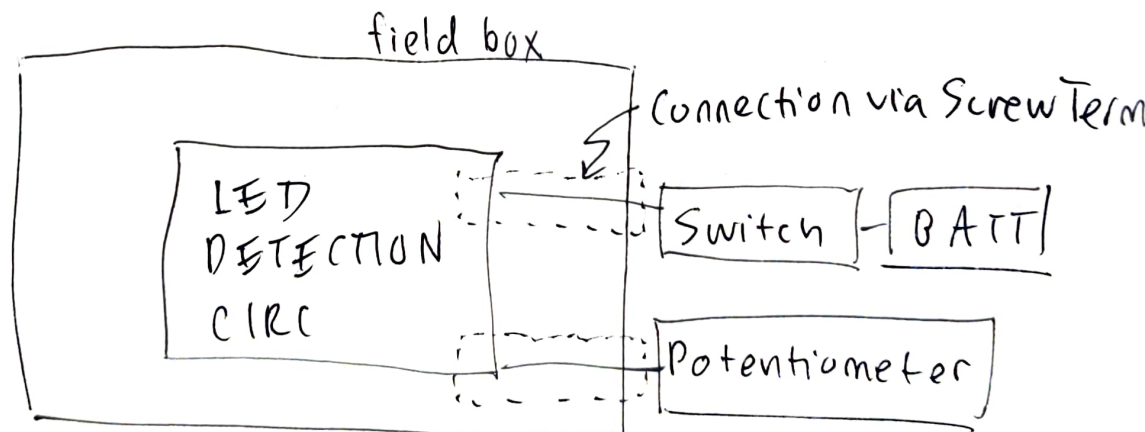 field box
Connection via Screw Term
LED
DETECTION
CIRC
Switch
BATT
Potentiometer